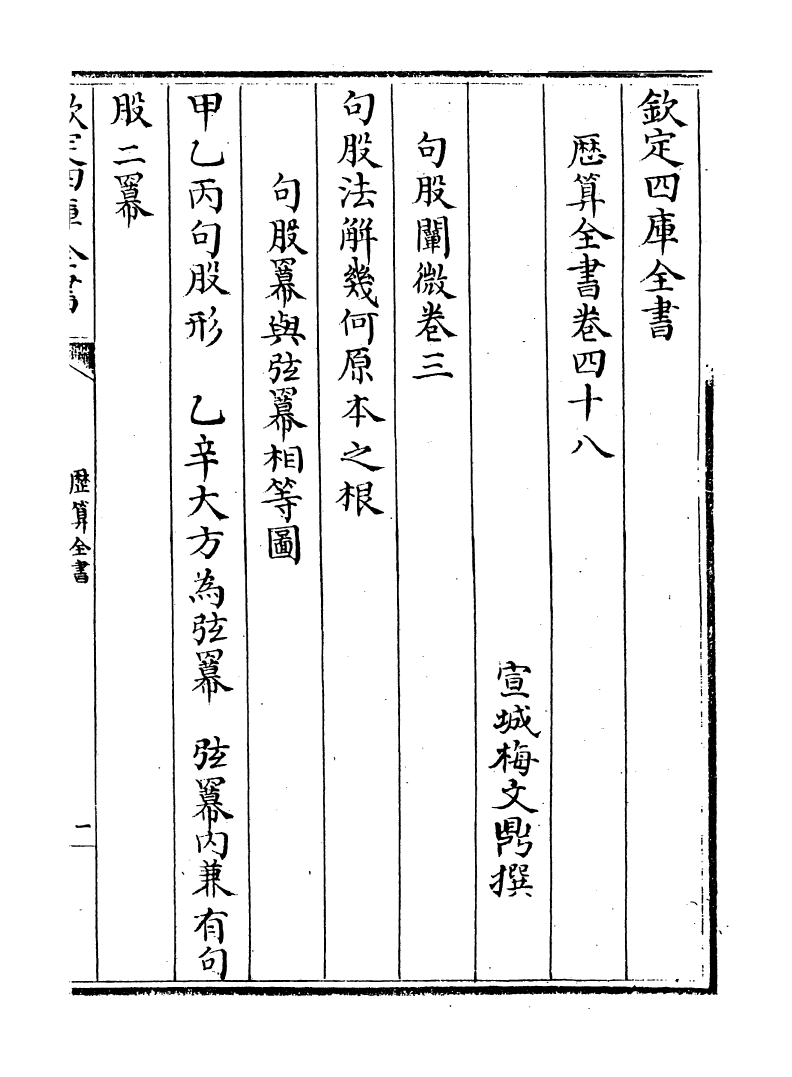 欽定四庫全書
厯算全書卷四十八
宣城梅文鼎撰
句股闡微卷三
句股法解幾何原本之根
句股冪與弦冪相等圖
甲乙丙句股形　乙辛大方為弦冪　弦冪内兼有句
股二冪
欽定四庫全書
歷算全書
一